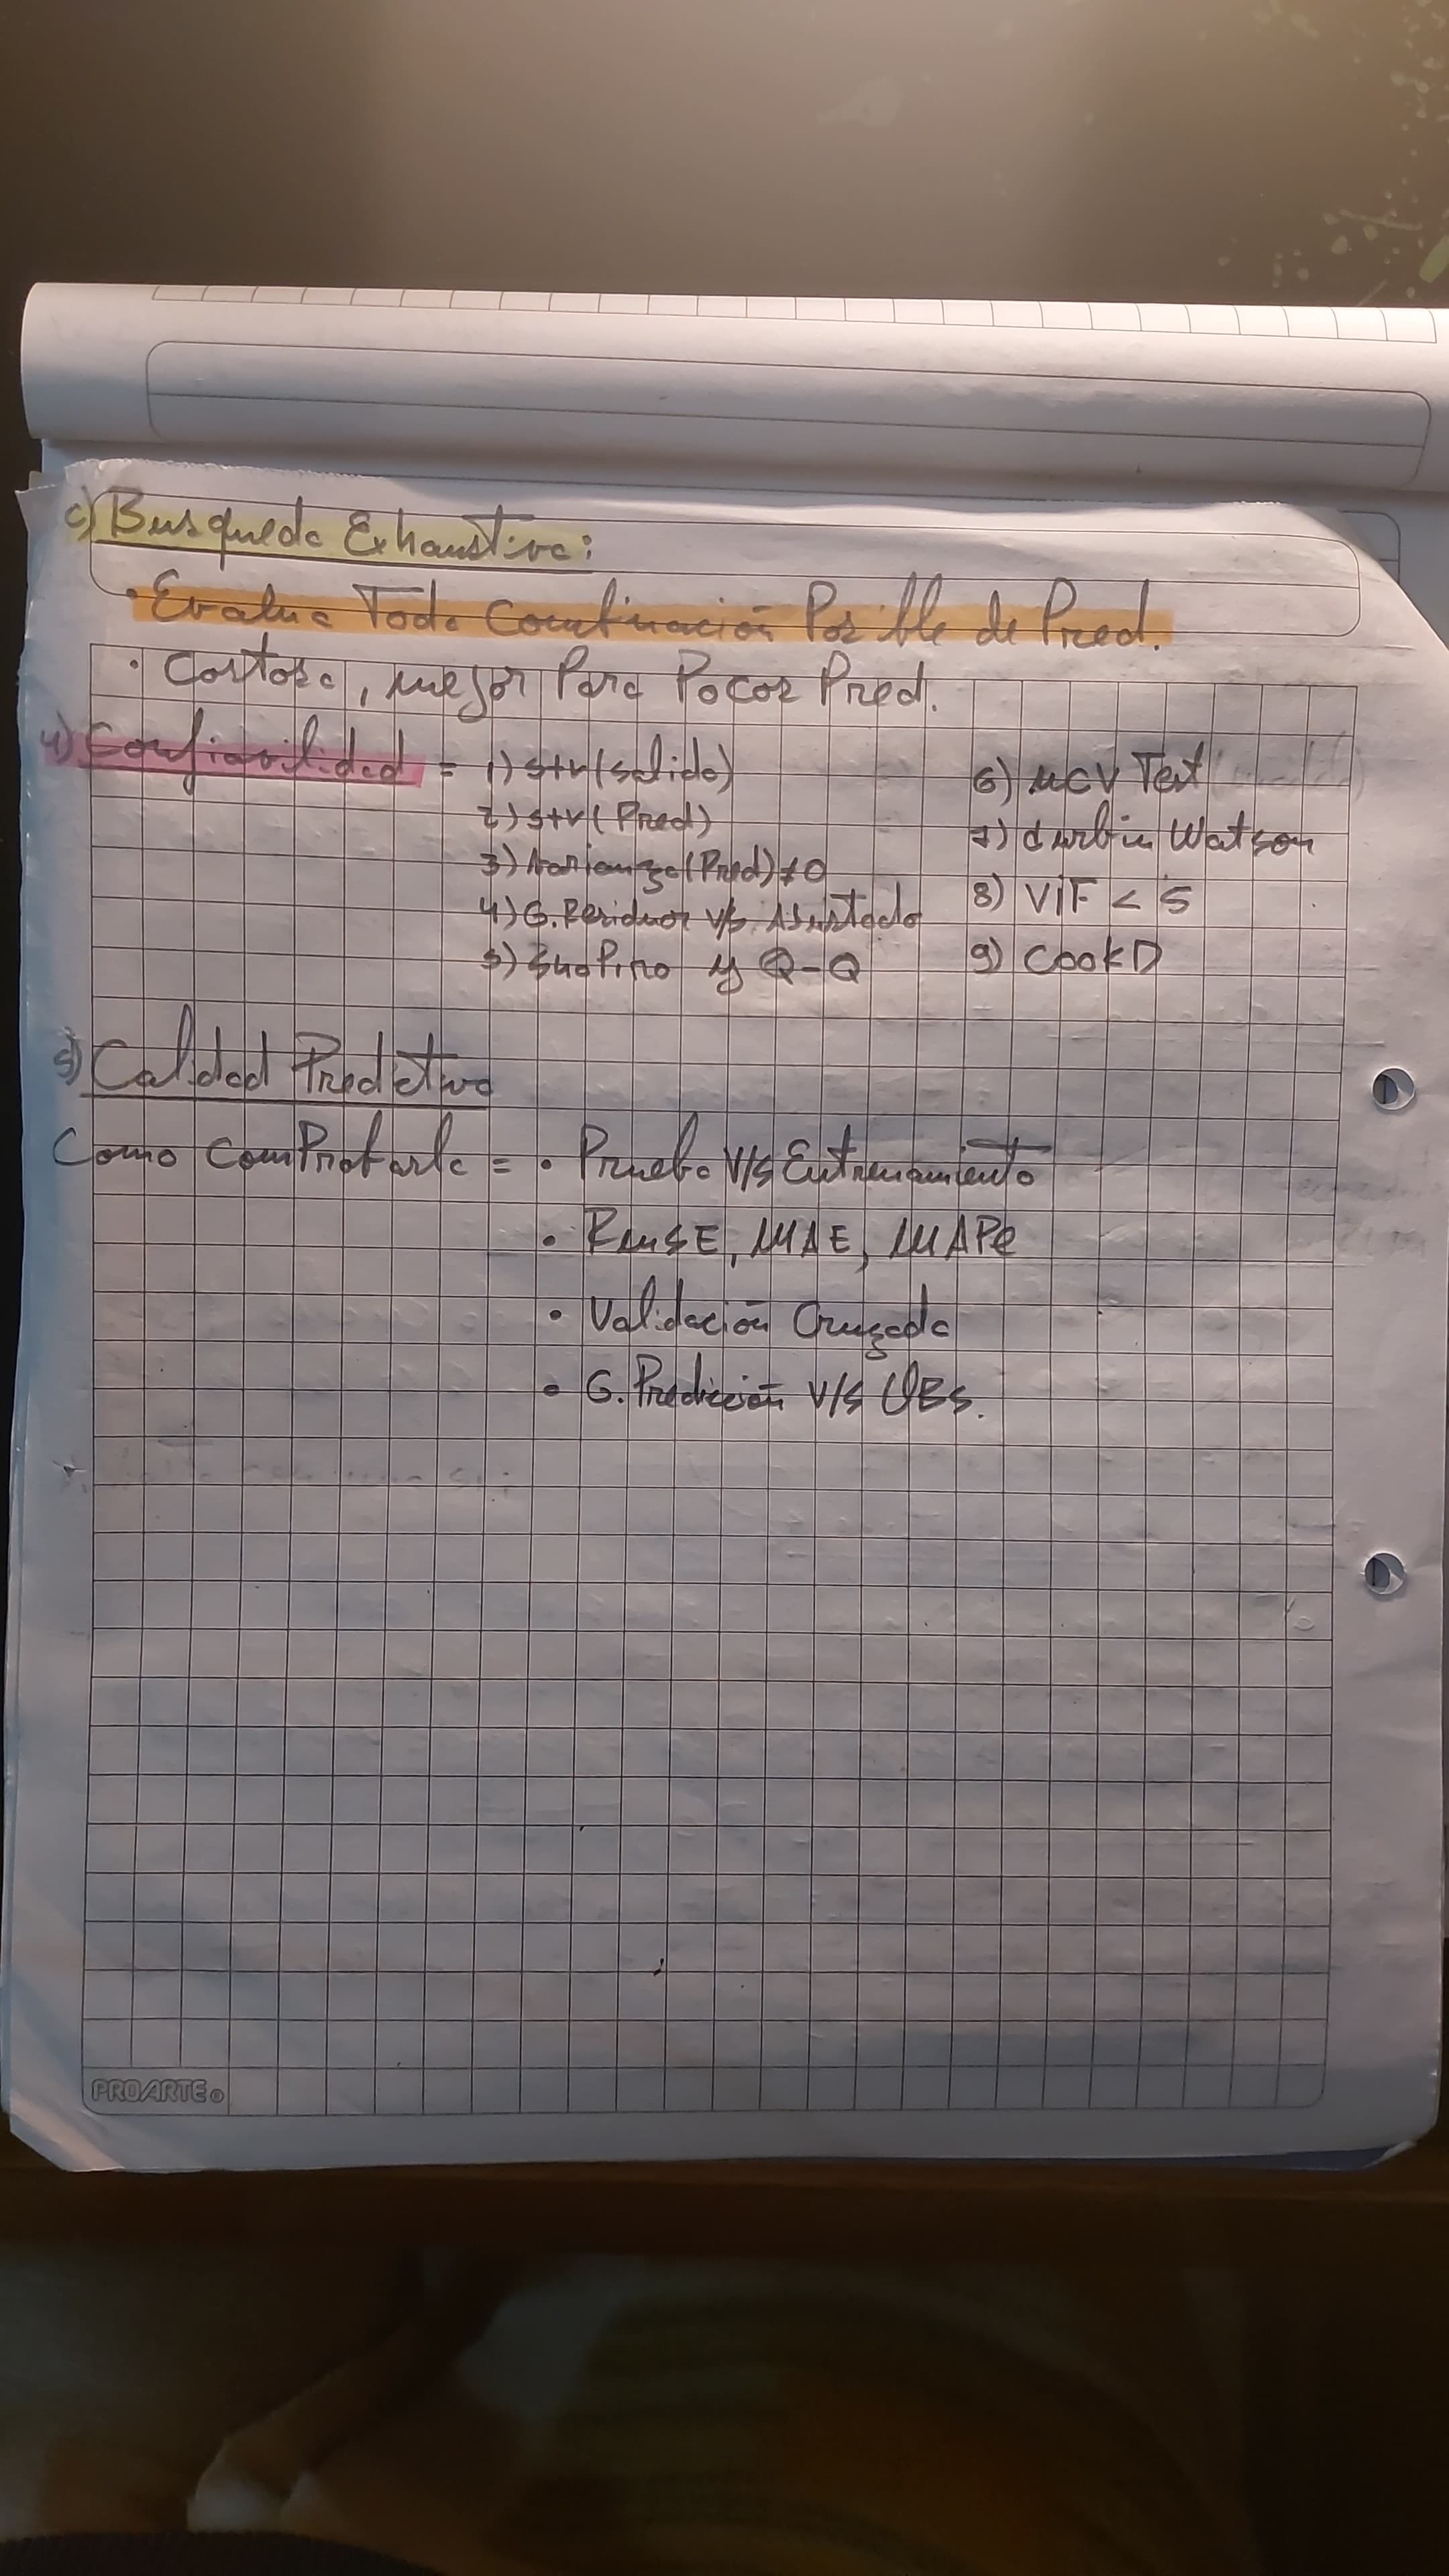 c) Busqueda Exhaustiva:
· Evalua Toda Combinación Posible de Pred.
· Costosa, mejor Para Pocos Pred.
4) Confiavilidad = 1) str(salida)
2) str(Pred)
3) Varianza(Pred) ≠ 0
4) G. Residuos v/s Ajustado
5) Shapiro y Q-Q
6) ncv Test
7) durbin Watson
8) VIF < 5
9) CookD
5) Calidad Predictiva
Como comProbarla = · Prueba v/s Entrenamiento
· RMSE, MAE, MAPe
· Validación Cruzada
· G. Predicción v/s OBs.
PROARTE®